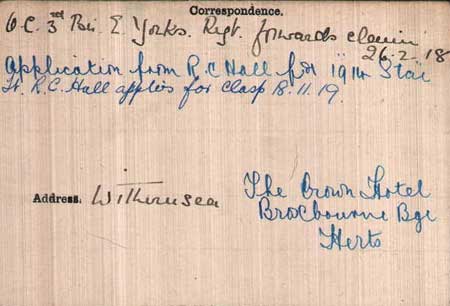 Correspondence.
O.C. 3rd Bn. E. Yorks. Regt. forwards claim
26.2.18
Application from R.C Hall for "1914 Star"
Lt. R.C. Hall applies for clasp 18.11.19.
Address. Withernsea
The Crown Hotel
Broxbourne Bge
Herts